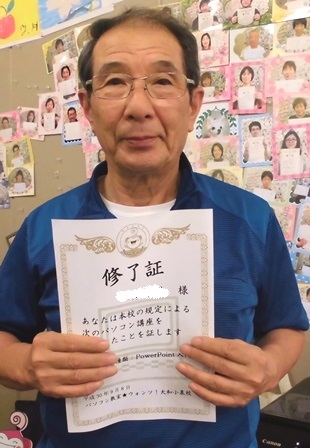 修了証
様
あなたは本校の規定による
次のパソコン講座を
たことを証します
PowerPoint
パソコン教室★ウォンツ!大和小泉校
Canon